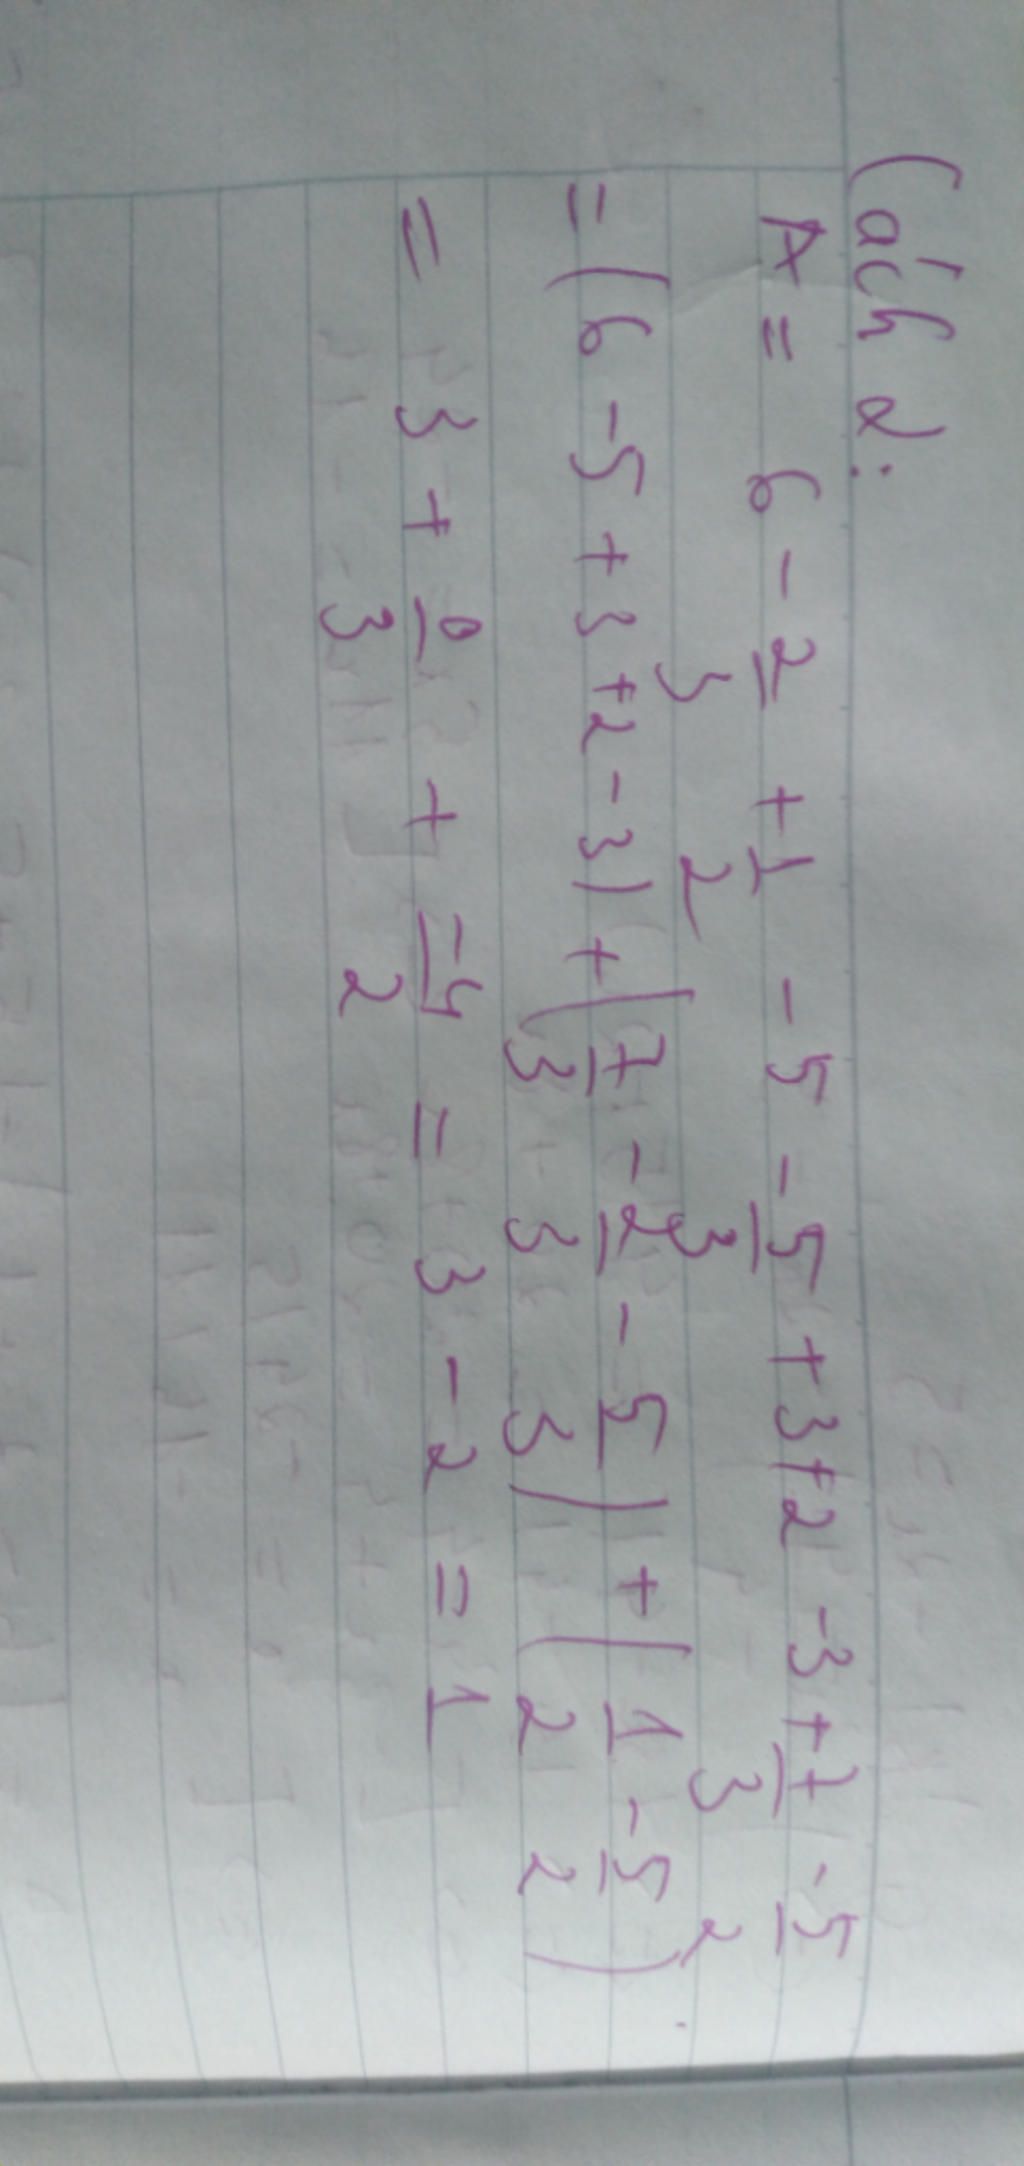 Cách 2:
A = 6 - 2/3 + 1/2 - 5 - 5/3 + 3 + 2 - 3 + 7/3 - 5/2
= (6 - 5 + 3 + 2 - 3) + (7/3 - 2/3 - 5/3) + (1/2 - 5/2)
= 3 + 0/3 + -4/2 = 3 - 2 = 1